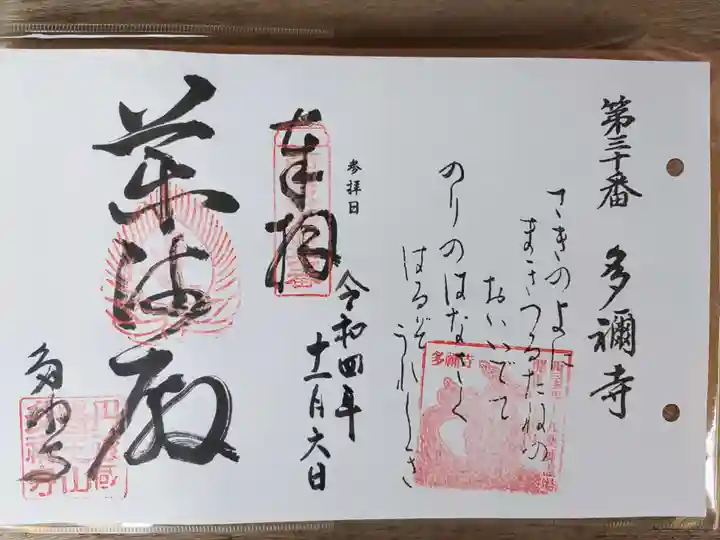 第三十番 多禰寺
さきのよに
まきつるたねの
おいいでて
のりのはなさく
はるぞうれしき
参拝日
令和四年
十一月六日
奉拝
薬師殿
多祢寺
多祢寺